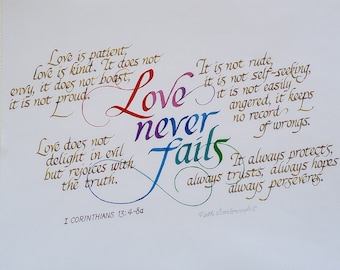 Love is patient,
love is kind. It does not
envy, it does not boast,
it is not proud.
It is not rude,
it is not self-seeking,
it is not easily
angered, it keeps
no record
of wrongs.
Love
never
fails
Love does not
delight in evil
but rejoices with
the truth.
It always protects,
always trusts, always hopes
always perseveres.
I CORINTHIANS 13:4-8a